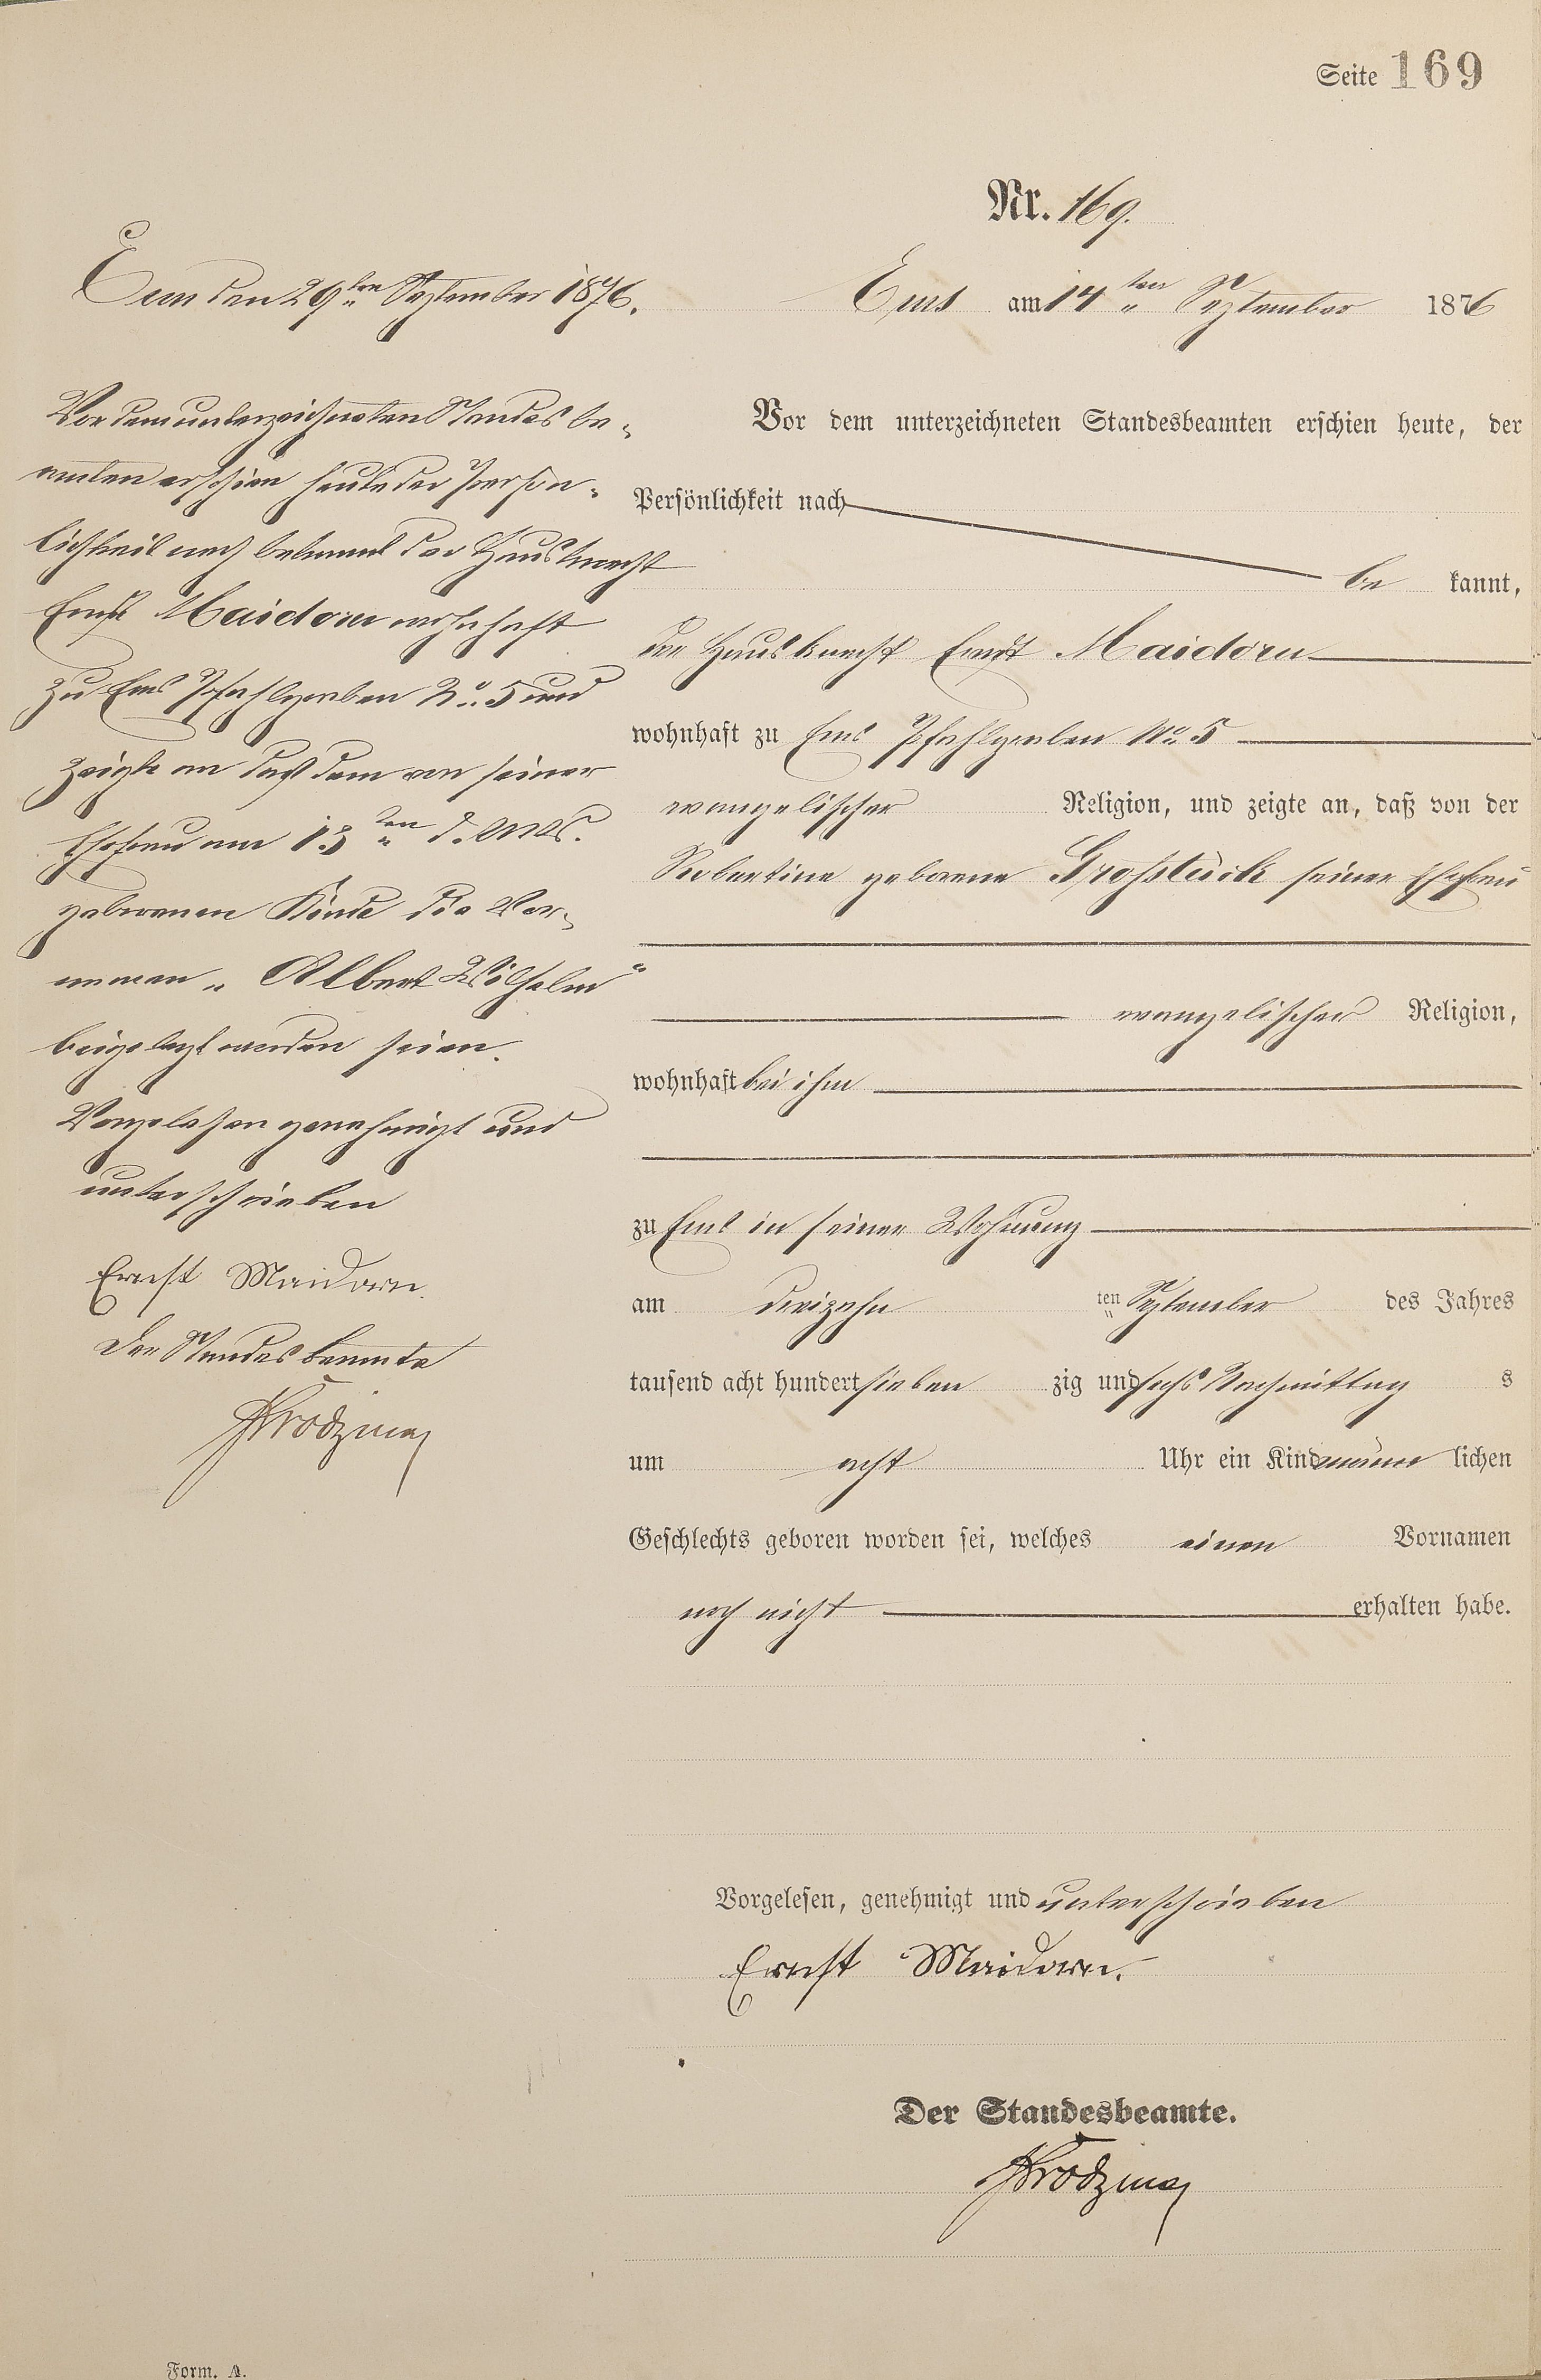 Seite 169
Nr. 169.
Ems am 14ten September 1876
Vor dem unterzeichneten Standesbeamten erschien heute, der
Persönlichkeit nach
be kannt,
der Hausknecht Ernst Maidorn
wohnhaft zu Ems Pfahlgraben No 5
evangelischer Religion, und zeigte an, daß von der
Robertine geborene Großstück seiner Ehefrau
evangelischer Religion,
wohnhaft bei ihm
zu Ems in seiner Wohnung
am dreizehn ten September des Jahres
tausend acht hundert sieben zig und sechs Nachmittag s
um acht Uhr ein Kind männ lichen
Geschlechts geboren worden sei, welches einen Vornamen
noch nicht erhalten habe.
Vorgelesen, genehmigt und unterschrieben
Ernst Maidorn.
Der Standesbeamte.
Ems den 29ten September 1876.
Vor dem unterzeichneten Standesbe-
amten erschien heute der Persön-
lichkeit nach bekannt der Hausknecht
Ernst Maidorn wohnhaft
zu Ems Pfahlgraben No 5 und
zeigte an daß dem von seiner
Ehefrau am 13ten d. Mts.
geborenen Kinde die Vor-
namen „Albert Wilhelm“
beigelegt worden seien.
Vorgelesen genehmigt und
unterschrieben
Ernst Maidorn.
Der Standesbeamte
Form. A.